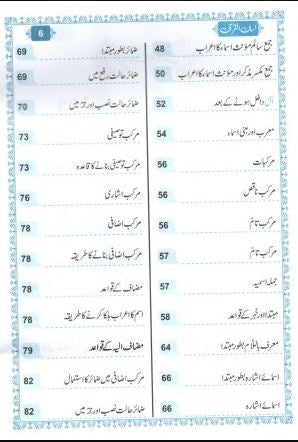 لسان القرآن
6
جمع سالم مؤنث اسماء کا اعراب 48
جمع مکسر مذکر اور مؤنث اسماء کا اعراب 50
ال داخل ہونے کے بعد 52
معرب اور مبنی اسماء 54
مرکبات 56
مرکب ناقص 56
مرکب تام 56
مرکب تام 57
جملہ اسمیہ 57
مبتدا اور خبر کے قواعد 58
معرف باللام بطور مبتدا 64
اسمائے اشارہ بطور مبتدا 66
اسمائے اشارہ 66
ضمائر بطور مبتدا 69
ضمائر حالت رفع میں 69
ضمائر حالت نصب اور جر میں 70
مرکب توصیفی 73
مرکب توصیفی بنانے کا قاعدہ 73
مرکب اشاری 76
مرکب اضافی 78
مرکب اضافی بنانے کا طریقہ 78
مضاف کے قواعد 78
اسم کا اعراب ہلکا کرنے کا طریقہ 78
مضاف الیہ کے قواعد 79
مرکب اضافی میں ضمائر کا استعمال 82
ضمائر حالت نصب اور جر میں 82